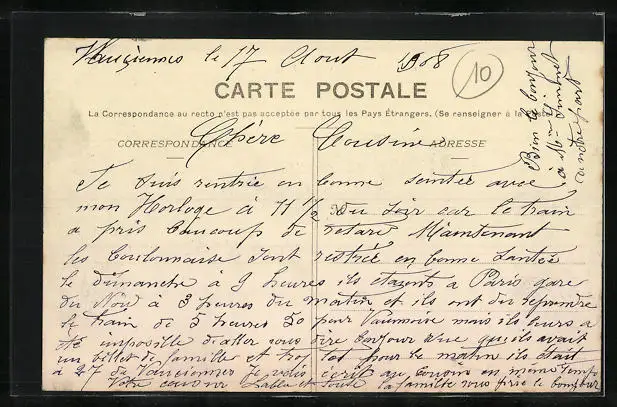 Vauciennes le 17 Aout 1908
10
CARTE POSTALE
La Correspondance au recto n'est pas acceptée par tous les Pays Étrangers. (Se renseigner à la
CORRESPONDANCE
ADRESSE
Chère Cousine
Je suis rentrée en bonne sentée avec
mon Horloge à 11 1/2 du soir car le train
a pris beaucoup de retard Maintenant
les sont rentrée en bonne santée
le dimanche à 9 heures ils étaents a Paris gare
du Nord à 3 heures du matin et ils ont du reprendre
le train de 5 heures 50 pour Vaumoise mais ils leurs a
été impossible d'aller vous dire bonjour vue qu'ils avait
un billet de famille et trop tot pour le matin ils était
a 27 de Vauciennes Je vais écrit au cousin en même temps
Votre cousine et toute la famille vous prie le bonjour
Bien le bonjour
à Mme
de notre part